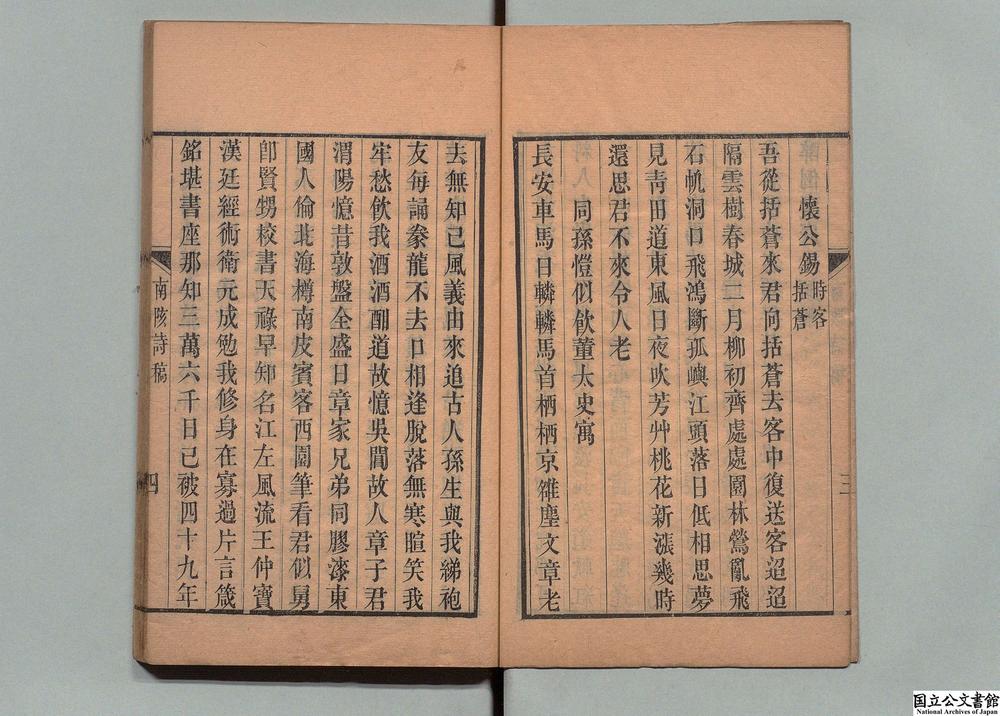 懷公錫時客括蒼
吾從括蒼來君向括蒼去客中復送客迢迢
隔雲樹春城二月柳初齊處處園林鶯亂飛
石帆洞口飛鴻斷孤嶼江頭落日低相思夢
見靑田道東風日夜吹芳艸桃花新漲幾時
還思君不來令人老
同孫愷似飮董太史寓
長安車馬日轔轔馬首栖栖京雒塵文章老
三
去無知己風義由來追古人孫生與我綈袍
友每誦豢龍不去口相逢脫落無寒暄笑我
牢愁飮我酒酒酣道故憶吳閶故人章子君
渭陽憶昔敦盤全盛日章家兄弟同膠漆東
國人倫北海樽南皮賓客西園筆看君似舅
卽賢甥校書天祿早知名江左風流王仲寶
漢廷經術衛元成勉我修身在寡過片言箴
銘堪書座那知三萬六千日已被四十九年
南陔詩稿
四
国立公文書館
National Archives of Japan